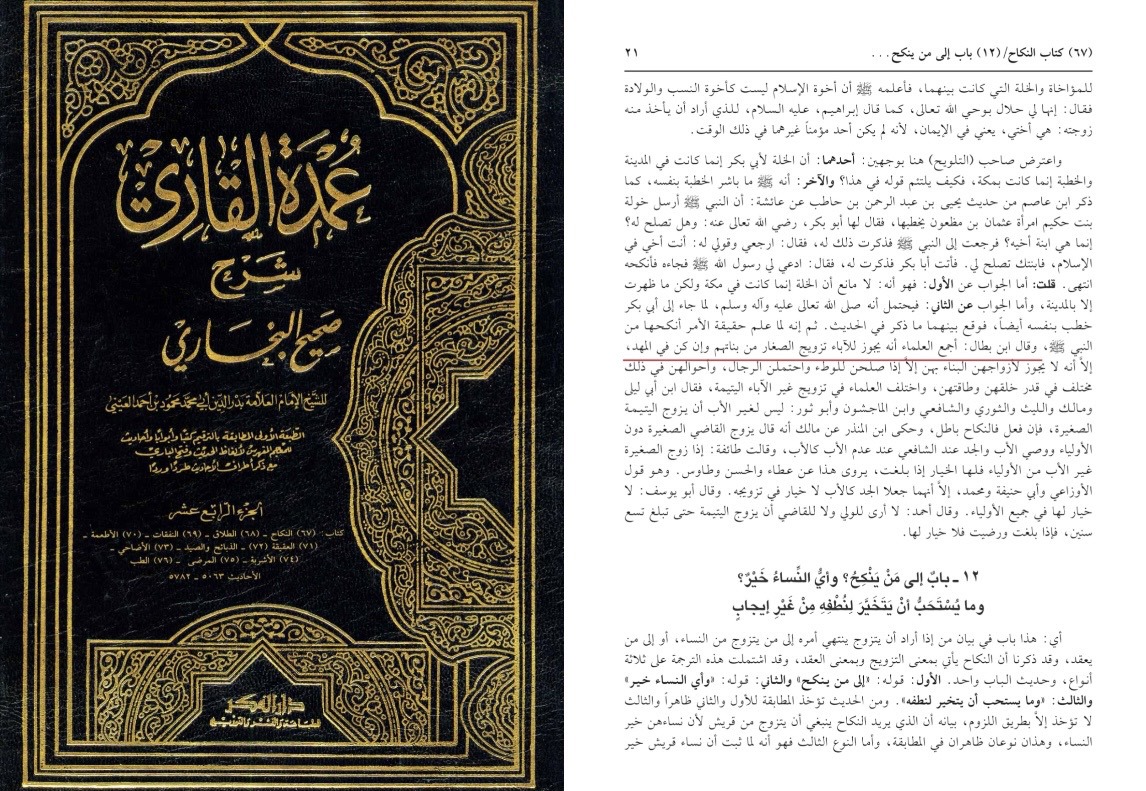 عُمدَة القَارِئ
شَرح
صَحيح البُخَاري
للشيخ الإمام العلامة بدر الدين أبي محمد محمود بن أحمد العيني
الطبعة الأولى المطابقة بالترقيم كتبا وأبوابا وأحاديث
للمعجم المفهرس لألفاظ الحديث وفتح الباري
مع ذكر أطراف الأحاديث طردا وردا
الجزء الرابع عشر
كتاب: (٦٧) النكاح - (٦٨) الطلاق - (٦٩) النفقات - (٧٠) الأطعمة -
(٧١) العقيقة (٧٢) - الذبائح والصيد - (٧٣) الأضاحي -
(٧٤) الأشربة - (٧٥) المرضى - (٧٦) الطب
الأحاديث ٥٠٦٣ - ٥٧٨٢
دار الفكر
للطباعة والنشر والتوزيع
(٦٧) كتاب النكاح/ (١٢) باب إلى من ينكح . . . ٢١
للمؤاخاة والخلة التي كانت بينهما، فأعلمه ﷺ أن أخوة الإسلام ليست كأخوة النسب والولادة
فقال: إنها لي حلال بوحي الله تعالى، كما قال إبراهيم، عليه السلام، للذي أراد أن يأخذ منه
زوجته: هي أختي، يعني في الإيمان، لأنه لم يكن أحد مؤمناً غيرهما في ذلك الوقت.
واعترض صاحب (التلويح) هنا بوجهين: أحدهما: أن الخلة لأبي بكر إنما كانت في المدينة
والخطبة إنما كانت بمكة، فكيف يلتئم قوله في هذا؟ والآخر: أنه ﷺ ما باشر الخطبة بنفسه، كما
ذكر ابن عاصم من حديث يحيى بن عبد الرحمن بن حاطب عن عائشة: أن النبي ﷺ أرسل خولة
بنت حكيم امرأة عثمان بن مظعون يخطبها، فقال لها أبو بكر، رضي الله تعالى عنه: وهل تصلح له؟
إنما هي ابنة أخيه؟ فرجعت إلى النبي ﷺ فذكرت ذلك له، فقال: ارجعي وقولي له: أنت أخي في
الإسلام، فابنتك تصلح لي. فأتت أبا بكر فذكرت له، فقال: ادعي لي رسول الله ﷺ فجاءه فأنكحه
انتهى. قلت: أما الجواب عن الأول: فهو أنه: لا مانع أن الخلة إنما كانت في مكة ولكن ما ظهرت
إلا بالمدينة، وأما الجواب عن الثاني: فيحتمل أنه صلى الله تعالى عليه وآله وسلم، لما جاء إلى أبي بكر
خطب بنفسه أيضاً، فوقع بينهما ما ذكر في الحديث. ثم إنه لما علم حقيقة الأمر أنكحها من
النبي ﷺ، وقال ابن بطال: أجمع العلماء أنه يجوز للآباء تزويج الصغار من بناتهم وإن كن في المهد،
إلاَّ أنه لا يجوز لأزواجهن البناء بهن إلاَّ إذا صلحن للوطء واحتملن الرجال، وأحوالهن في ذلك
مختلف في قدر خلقهن وطاقتهن، واختلف العلماء في تزويج غير الآباء اليتيمة، فقال ابن أبي ليلى
ومالك والليث والثوري والشافعي وابن الماجشون وأبو ثور: ليس لغير الأب أن يزوج اليتيمة
الصغيرة، فإن فعل فالنكاح باطل، وحكى ابن المنذر عن مالك أنه قال يزوج القاضي الصغيرة دون
الأولياء ووصي الأب والجد عند الشافعي عند عدم الأب كالأب، وقالت طائفة: إذا زوج الصغيرة
غير الأب من الأولياء فلها الخيار إذا بلغت، يروى هذا عن عطاء والحسن وطاوس. وهو قول
الأوزاعي وأبي حنيفة ومحمد، إلاَّ أنهما جعلا الجد كالأب لا خيار في تزويجه. وقال أبو يوسف: لا
خيار لها في جميع الأولياء. وقال أحمد: لا أرى للولي ولا للقاضي أن يزوج اليتيمة حتى تبلغ تسع
سنين، فإذا بلغت ورضيت فلا خيار لها.
١٢ ـ بابٌ إلى مَنْ يَنْكِحُ؟ وأيُّ النِّساءُ خَيْرٌ؟
وما يُسْتَحَبُّ أنْ يَتَخَيَّرَ لِنُطْفِهِ مِنْ غَيْرِ إيجابٍ
أي: هذا باب في بيان من إذا أراد أن يتزوج ينتهي أمره إلى من يتزوج من النساء، أو إلى من
يعقد، وقد ذكرنا أن النكاح يأتي بمعنى التزويج وبمعنى العقد، وقد اشتملت هذه الترجمة على ثلاثة
أنواع، وحديث الباب واحد. الأول: قوله: «إلى من ينكح» والثاني: قوله: «وأي النساء خير»
والثالث: «وما يستحب أن يتخير لنطفه». ومن الحديث تؤخذ المطابقة للأول والثاني ظاهراً والثالث
لا تؤخذ إلاَّ بطريق اللزوم، بيانه أن الذي يريد النكاح ينبغي أن يتزوج من قريش لأن نساءهن خير
النساء، وهذان نوعان ظاهران في المطابقة، وأما النوع الثالث فهو أنه لما ثبت أن نساء قريش خير